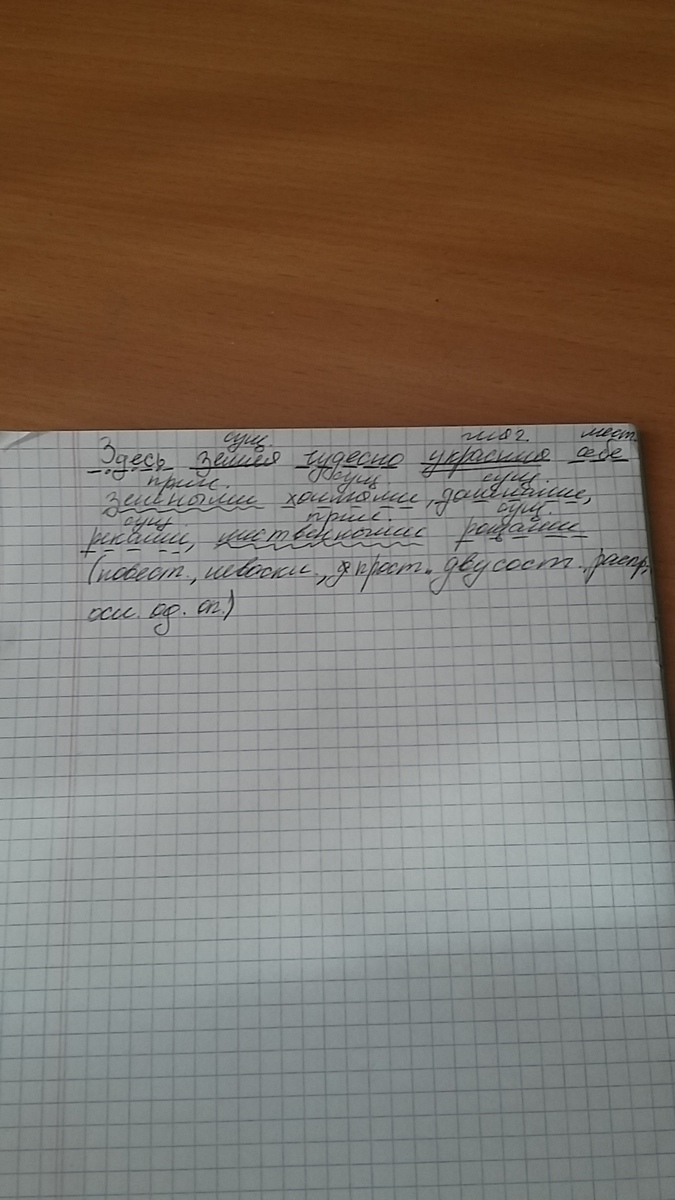 сущ. глаг. мест.
Здесь земля чудесно украсила себе
прил. сущ. сущ.
зелеными холмами, долинами,
сущ. прил. сущ.
реками, лиственными рощами
(повест., невоскл., прост., двусост., распр,
осл. од. оп.)